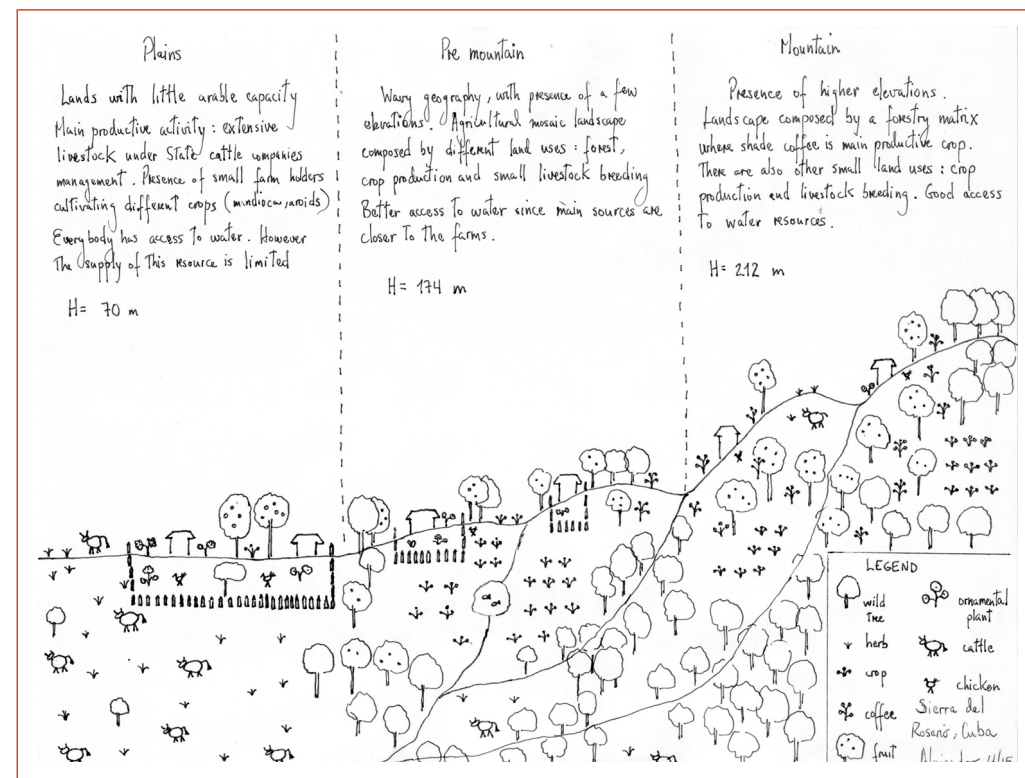 Plains
Lands with little arable capacity
Main productive activity : extensive
livestock under State cattle companies
management. Presence of small farm holders
cultivating different crops (mandioca, aroids)
Everybody has access to water. However
The supply of This resource is limited
H= 70 m
Pre mountain
Wavy geography, with presence of a few
elevations. Agricultural mosaic landscape
composed by different land uses : forest,
crop production and small livestock breeding
Better access to water since main sources are
closer to the farms.
H= 174 m
Mountain
Presence of higher elevations.
Landscape composed by a forestry matrix
where shade coffee is main productive crop.
There are also other small land uses : crop
production and livestock breeding. Good access
to water resources.
H= 212 m
LEGEND
wild
tree
herb
crop
coffee
fruit
ornamental
plant
cattle
chicken
Sierra del
Rosario, Cuba